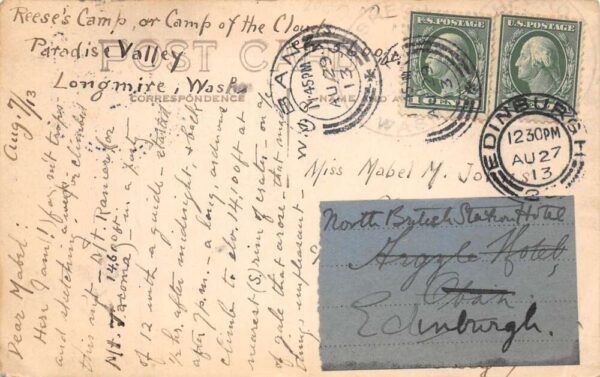 Reese's Camp, or Camp of the Clouds
Paradise Valley 5400 ft
Longmire, Wash.
POST CARD
CORRESPONDENCE
NAME AND
Aug. 7/13
Dear Mabel:
Here I am! for nut trips
and sketching & map-climbed
this mt — Mt. Ranier (or
Mt. Tacoma) — in a party
14,600 ft.
of 12 with a guide — started
½ hr. after midnight, & back
after 7 p.m. — a long, arduous
climb to elev. 14,100 ft at
nearest (S) rim of crater on a/c
of gale that arose — that made
things unpleasant
U.S. POSTAGE
1 CENT 1
U.S. POSTAGE
BANAVIE
7.45PM
AU 29
13
EDINBURGH
12 30PM
AU 27
13
2
Miss Mabel M.
North British Station Hotel
Argyle Hotel,
Oban
Edinburgh.